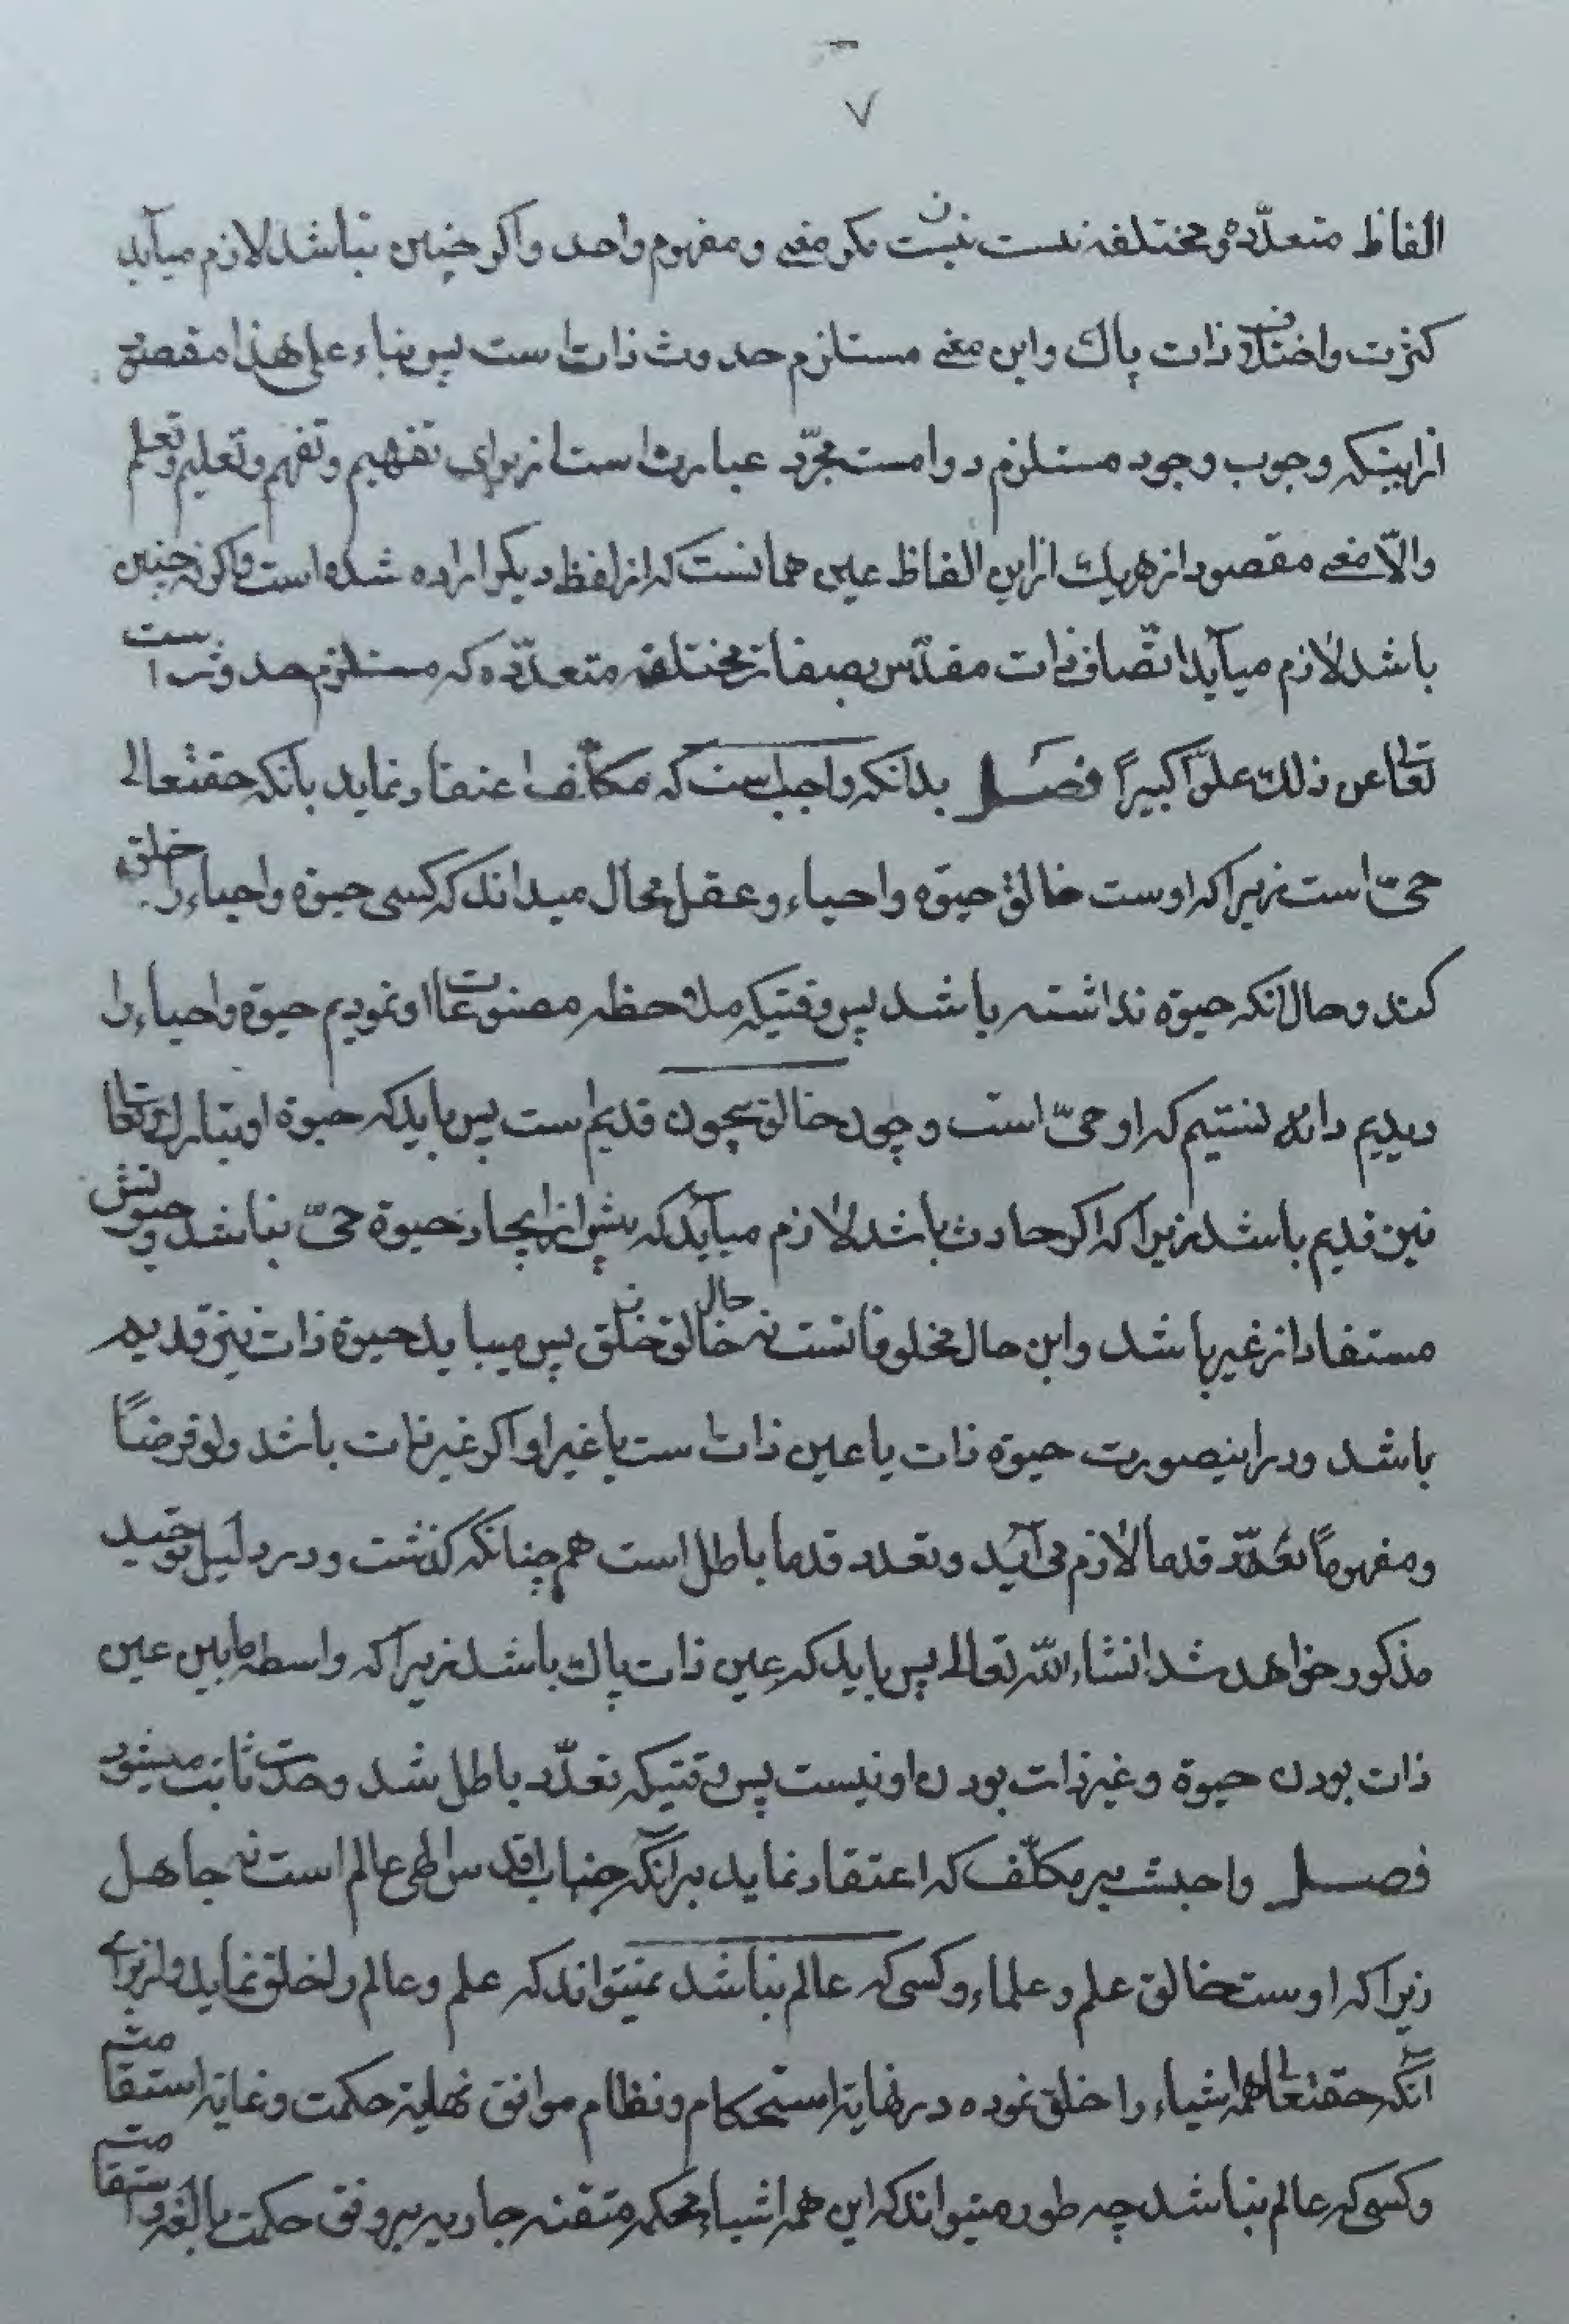 ۷
الفاظ متعدّده و مختلفه نیست مکر معنی و مفهوم واحد و اکر چنین نباشد لازم میآید
کثرت و اختلاف ذات پاک و این معنی مستلزم حدوث ذات است پس بناء علی هذا مقصود
از اینکه وجوب وجود مستلزم دوامست مجرّد عبارت است از برای تفهیم و تفهم و تعلیم و تعلم
والّا معنی مقصود از هریک از این الفاظ عین همانست که از لفظ دیکر اراده شده است و اکر نه چنین
باشد لازم میآید اتّصاف ذات مقدّس بصفات مختلفه متعدّده که مستلزم حدوث است
تعالی عن ذلک علوّاً کبیراً فصل بدانکه واجب است که مکلّف اعتقاد نماید بانکه حقتعالی
حیّ است زیرا که اوست خالق حیوة و احیاء و عقل محال میداند که کسی حیوة و احیاء را خلق
کند و حال انکه حیوة نداشته باشد پس وقتیکه ملاحظه مصنوعات او نمودیم حیوة و احیاء را
دیدیم دانستیم که او حیّ است و چون خالق بیچون قدیم است پس باید که حیوة او تبارک و تعالی
نیز قدیم باشد زیرا که اکر حادث باشد لازم میآید که پیش از ایجاد حیوة حیّ نباشد و حیوتش
مستفاد از غیر باشد و این حال مخلوقاتست نه حال خالق خلق پس میباید حیوة ذات نیز قدیم
باشد و در اینصورت حیوة ذات یا عین ذات است یا غیر او اکر غیر ذات باشد ولو فرضاً
و مفهوماً تعدّد قدما لازم می آید و تعدد قدما باطل است هم چنانکه کذشت و در دلیل توحید
مذکور خواهد شد انشاء الله تعالی پس باید که عین ذات پاک باشد زیرا که واسطه مابین عین
ذات بودن حیوة و غیر ذات بودن او نیست پس وقتیکه تعدّد باطل شد وحدت ثابت میشود
فصل واجبست بر مکلّف که اعتقاد نماید بر آنکه جناب اقدس الهی عالم است نه جاهل
زیرا که اوست خالق علم و علماء و کسی که عالم نباشد نمیتواند که علم و عالم را خلق نماید و از برای
آنکه حقتعالی همه اشیاء را خلق نموده در نهایة استحکام و نظام موافق نهایة حکمت و غایة استقامت
و کسی که عالم نباشد چه طور میتواند که این همه اشیاء محکمه متقنه جاریه بر وفق حکمت بالغه و استقامت